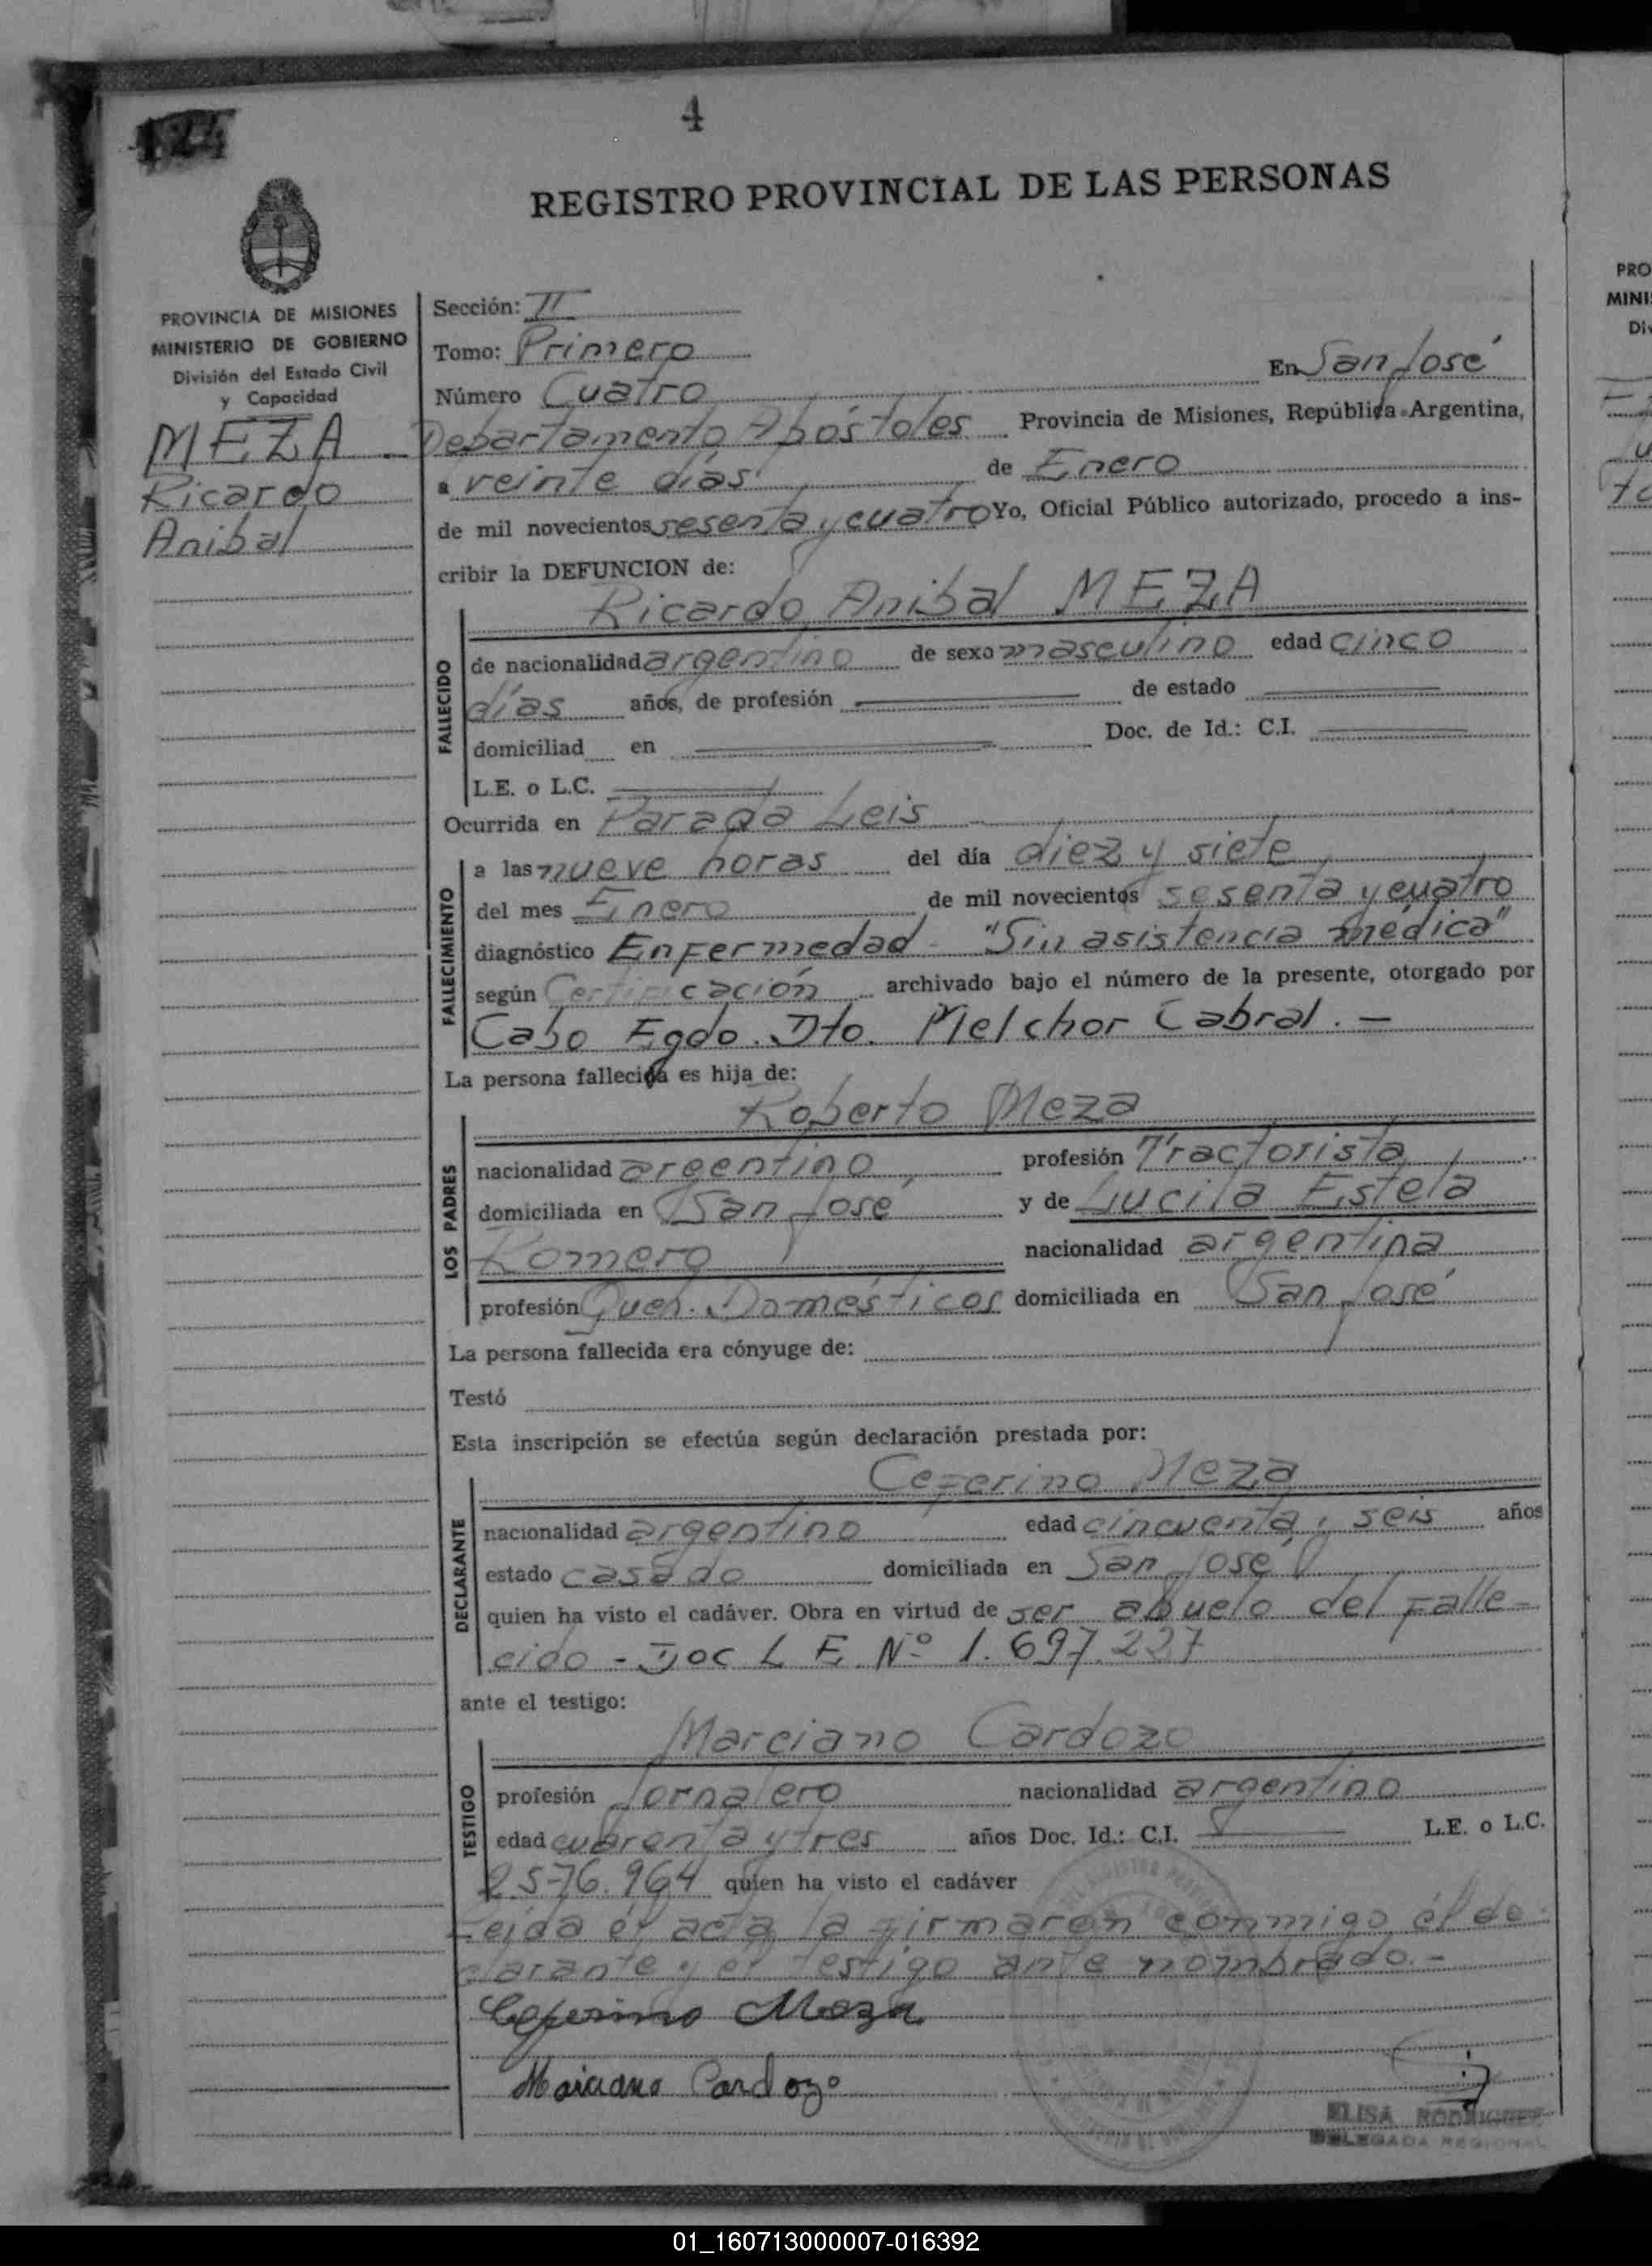 4
REGISTRO PROVINCIAL DE LAS PERSONAS
PROVINCIA DE MISIONES
MINISTERIO DE GOBIERNO
División del Estado Civil
y Capacidad
MEZA
Ricardo
Anibal
Sección: II
Tomo: Primero
Número Cuatro En San José
Departamento Apóstoles Provincia de Misiones, República Argentina,
a veinte días de Enero
de mil novecientos sesenta y cuatro Yo, Oficial Público autorizado, procedo a ins-
cribir la DEFUNCION de:
Ricardo Anibal MEZA
FALLECIDO
de nacionalidad argentino de sexo masculino edad cinco
días años, de profesión de estado
domiciliad en Doc. de Id.: C.I.
L.E. o L.C.
Ocurrida en Parada Leis
FALLECIMIENTO
a las nueve horas del día diez y siete
del mes Enero de mil novecientos sesenta y cuatro
diagnóstico Enfermedad - "Sin asistencia médica"
según Certificación archivado bajo el número de la presente, otorgado por
Cabo Egdo. Dto. Melchor Cabral. -
La persona fallecida es hija de:
Roberto Meza
LOS PADRES
nacionalidad argentino profesión Tractorista
domiciliada en San José y de Lucila Estela
Romero nacionalidad argentina
profesión Queh. Domésticos domiciliada en San José
La persona fallecida era cónyuge de:
Testó
Esta inscripción se efectúa según declaración prestada por:
Ceferino Meza
DECLARANTE
nacionalidad argentino edad cincuenta y seis años
estado casado domiciliada en San José
quien ha visto el cadáver. Obra en virtud de ser abuelo del falle-
cido - Doc L E Nº 1.697.227
ante el testigo:
Marciano Cardozo
TESTIGO
profesión Jornalero nacionalidad argentino
edad cuarenta y tres años Doc. Id.: C.I. L.E. o L.C.
2576.964 quien ha visto el cadáver
Leida el acta la firmaron conmigo el de-
clarante y el testigo ante nombrado.-
Ceferino Meza
Marciano Cardozo
ELISA RODRIGUEZ
DELEGADA REGIONAL
PRO
MINI
Di
01_160713000007-016392